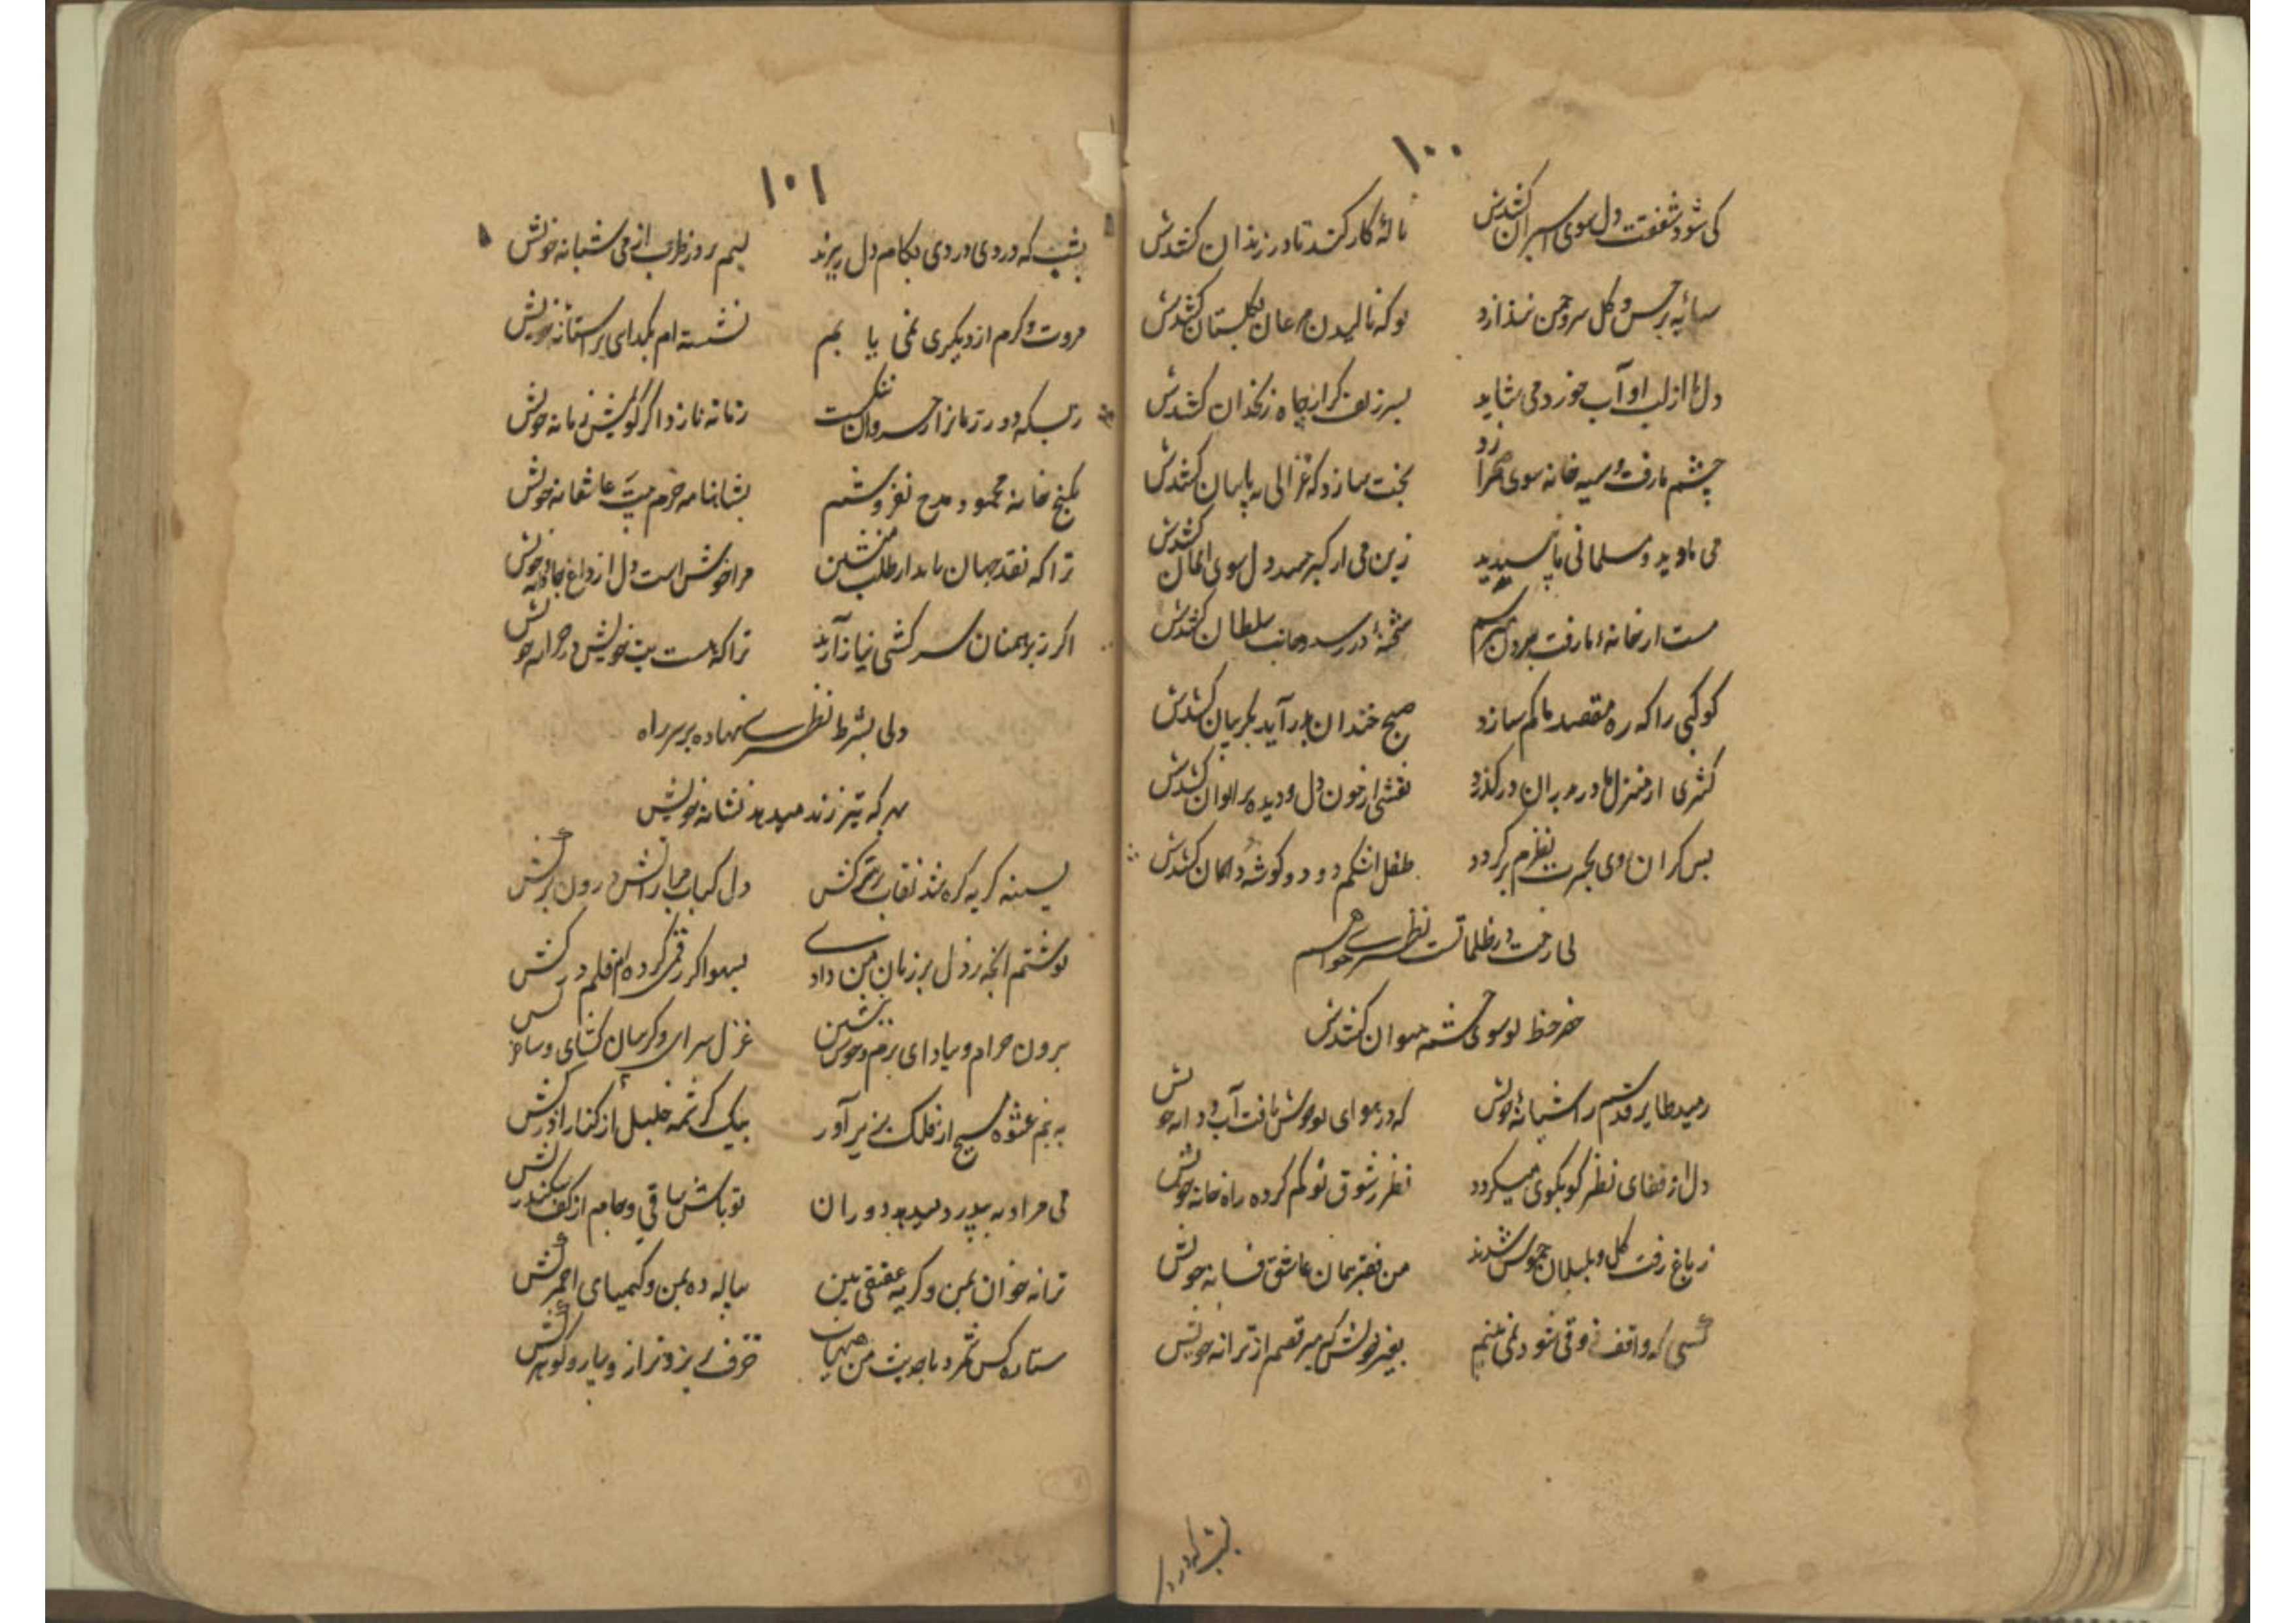 ۱۰۰
کی شود شفقت دل سوی اسیران کشدش
نالهٔ کار کند تا در زندان کشدش
سایه بر خس و گل سرو چمن نندازد
تو که نالیدن مرغان گلستان کشدش
دل ما از لب او آب خورد می شاید
بسر زلف گر از چاه زنخدان کشدش
چشم ما رفت سیه خانه سوی صحرا زد
بخت سازد که غزالی به بیابان کشدش
می باوید و مسلمانی ما پسندید
زین می ار گبر چشد دل سوی ایمان کشدش
مست از خانهٔ ما رفت برون می ترسم
شحنهٔ در رسد و جانب سلطان کشدش
کوکبی را که ره مقصد ما گم سازد
صبح خندان بدر آید بگریبان کشدش
کشری از منزل ما در دبران درگذرد
نقشی از خون دل و دیده بر ایوان کشدش
بس گران وی بحیرت نظرم برگردد
طفل اشکم دود و گوشهٔ دامان کشدش
پی رخت در ظلماتست نظیری خواهم
خضر خط تو سوی چشمه حیوان کشدش
رمید طایر قدسم ز آشیانهٔ خویش
که در هوای تو خوش یافت آب و دانه خویش
دل از قفای نظر کو بکوی میگردد
نظر ز شوق تو گم کرده راه خانه خویش
ز باغ رفت گل و بلبلان خموش شدند
من فقیر همان عاشق فسانه خویش
کسی که واقف ذوقی شود نمی بینم
بغیر خویش که میرقصم از ترانه خویش
بشب که دردی
۱۰۱
بشب که دردی دردی بکام دل ریزند
لبم بروز طرب از می شبانه خویش
مروت و کرم از دیگری نمی یابم
نشسته ام بگدای بر آستانه خویش
ز بسکه دور زمانرا ز خسروان ننگست
زمانه نازد اگر گویمش زمانه خویش
بگنج خانه محمود مدح نفروشم
بشاهنامه خرم بیت عاشقانه خویش
ترا که نقد جهان باید از طلب منشین
مرا خوش است دل از داغ جاودانه خویش
اگر ز برهمنان سرکشی نیاز آرند
ترا که هست بت خویش در خزانه خویش
ولی بشرط نظیری نهاده بر سر راه
بهر که تیر زند میدهد نشانه خویش
بسینه گریه گره شد نقاب برکش
دل کباب مرا ز آتش درون برکش
نوشتم آنچه ز دل بر زبان من دادی
بسهو اگر رقمی کرده ام قلم درکش
برون خرام و بیا دای بزم و خوش بنشین
غزل سرای و گریبان گشای و ساغر کش
به نیم عشوه مسیح از فلک بزیر آور
بیک کرشمه خلیل از کنار آذر کش
می مراد به بیدرد میدهد دوران
تو باش ساقی و جام از کف سکندر کش
ترانه خوان بمن و گریه عقیقی بین
پیاله ده بمن و کیمیای احمر کش
ستاره کس نشمرد با حدیث من صهبا
خزف بریز و ترازو بیار و گوهر کش